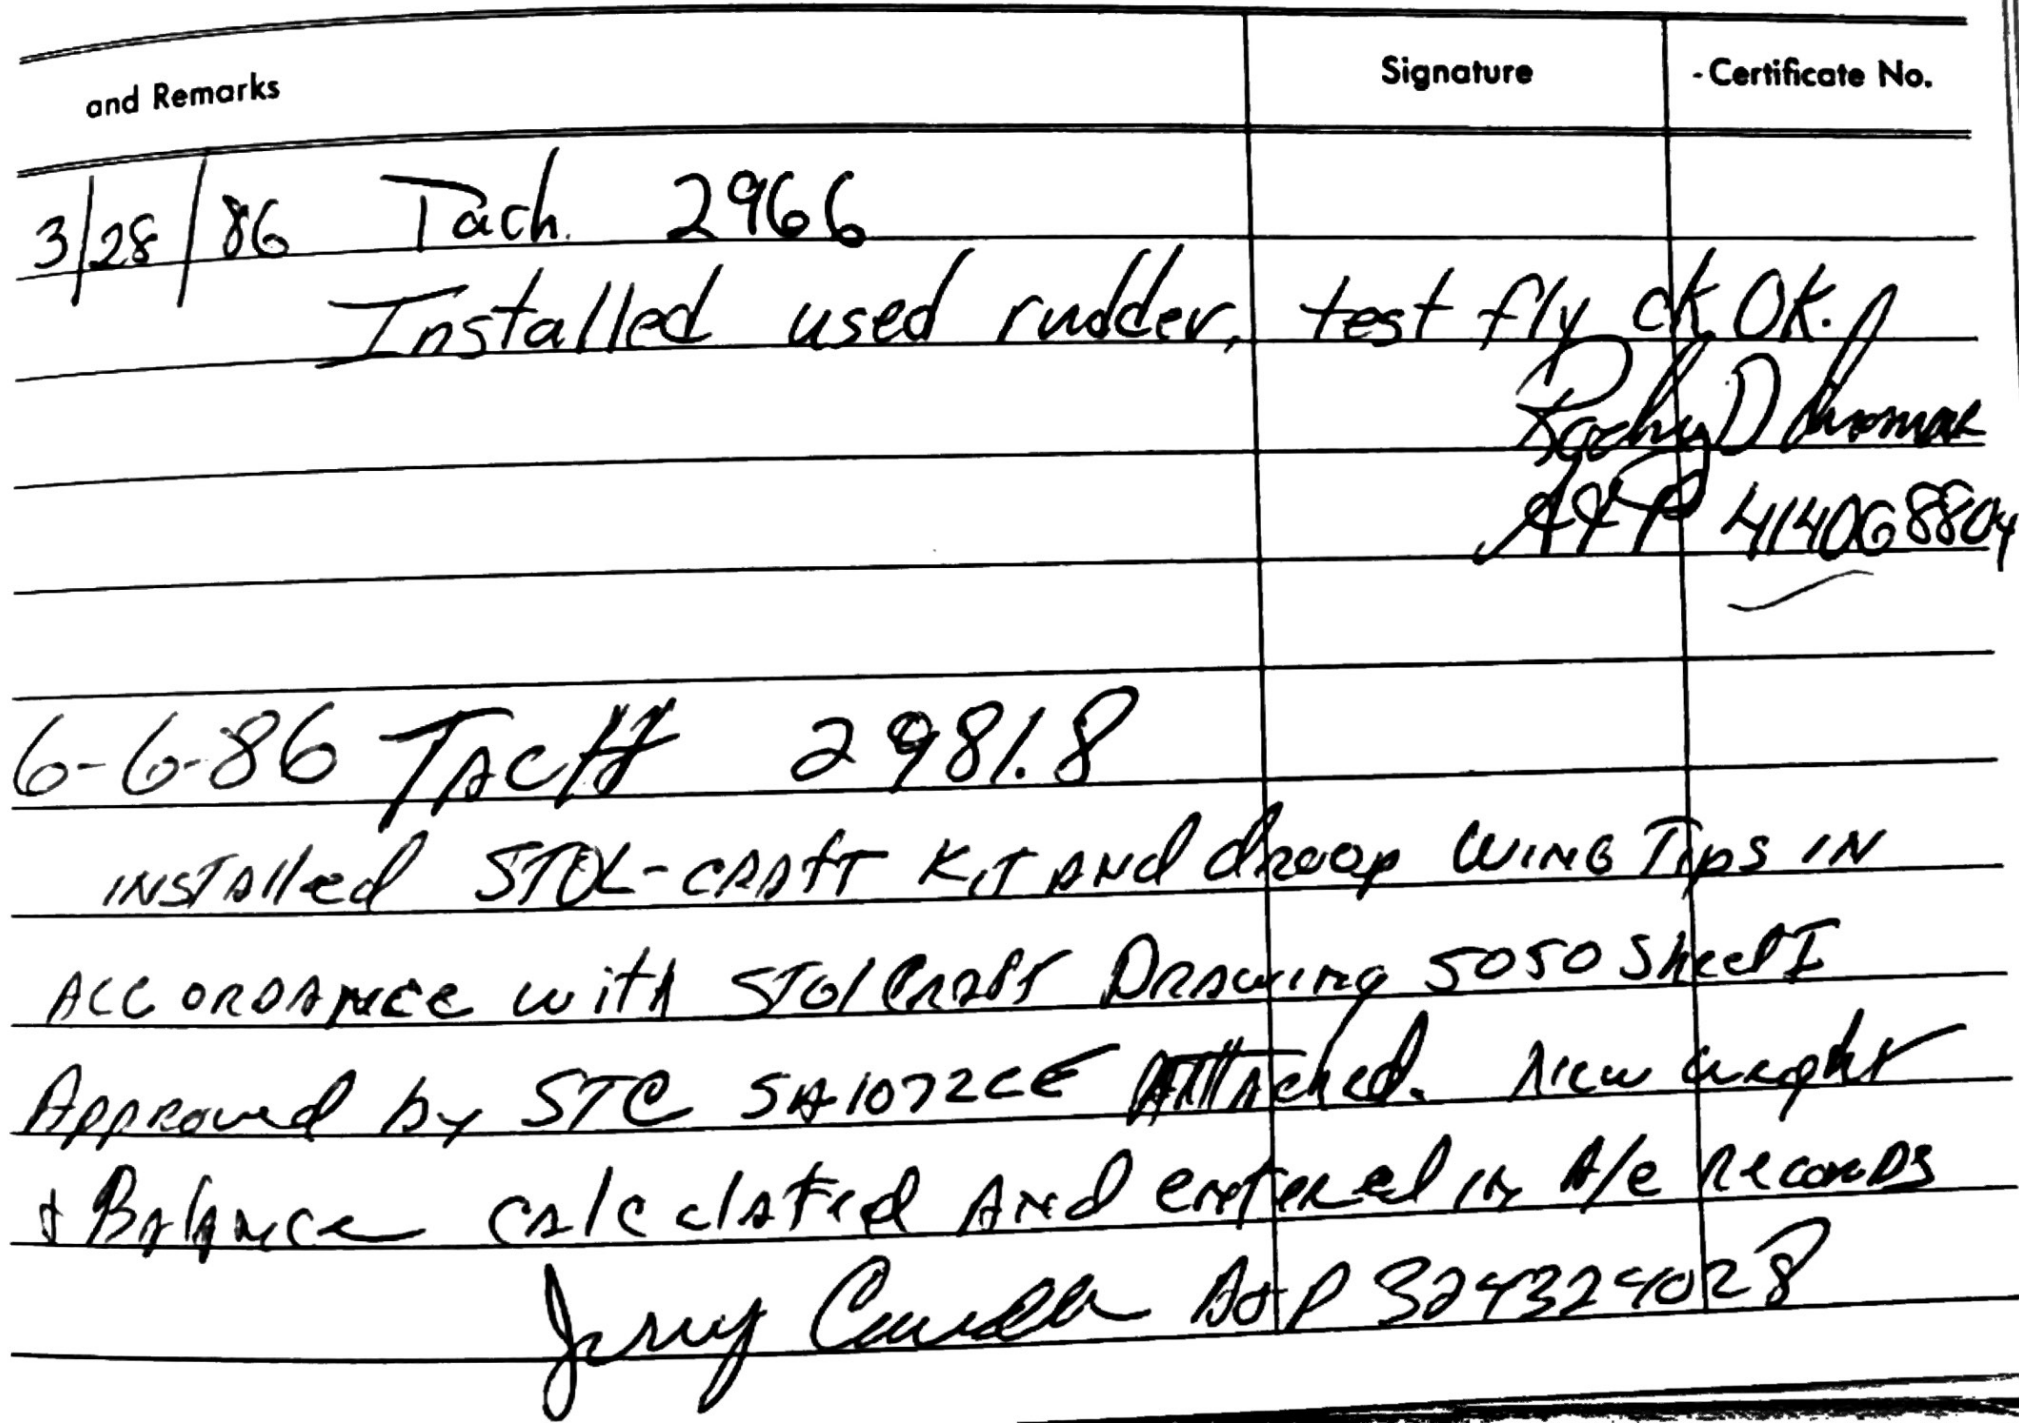 and Remarks Signature - Certificate No.
3/28/86 Tach. 2966
Installed used rudder, test fly ck OK.
D
A&P 414068804
6-6-86 TACH 2981.8
INSTAlled STOL-CRAft KiT ANd droop WING Tips IN
ACCORDANCE with STOlCRAft DRAwing 5050 Sheet I
Approved by STC SA1072CE ATTAched. New weight
& BAlANCE CAlCulAted ANd entered in A/C Records
Jerry A&P 324324028